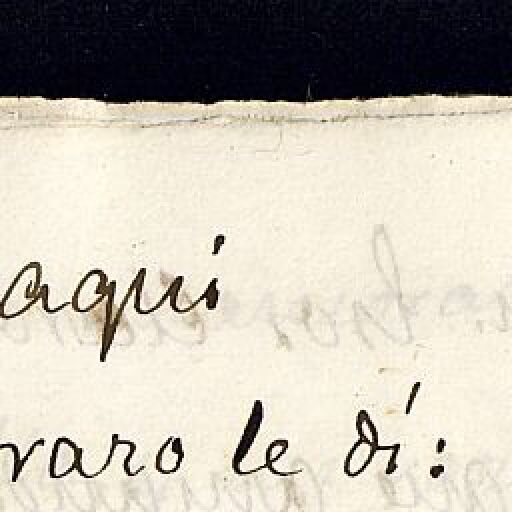 aquí
varo le dí: